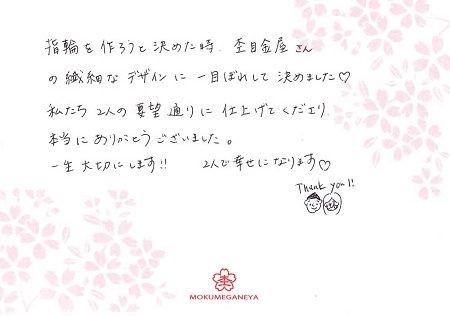 指輪を作ろうと決めた時、杢目金屋さん
の繊細なデザインに一目ぼれして決めました♡
私たち2人の要望通りに仕上げてくださり
本当にありがとうございました。
一生大切にします!! 2人で幸せになります♡
Thank you!!
MOKUMEGANEYA